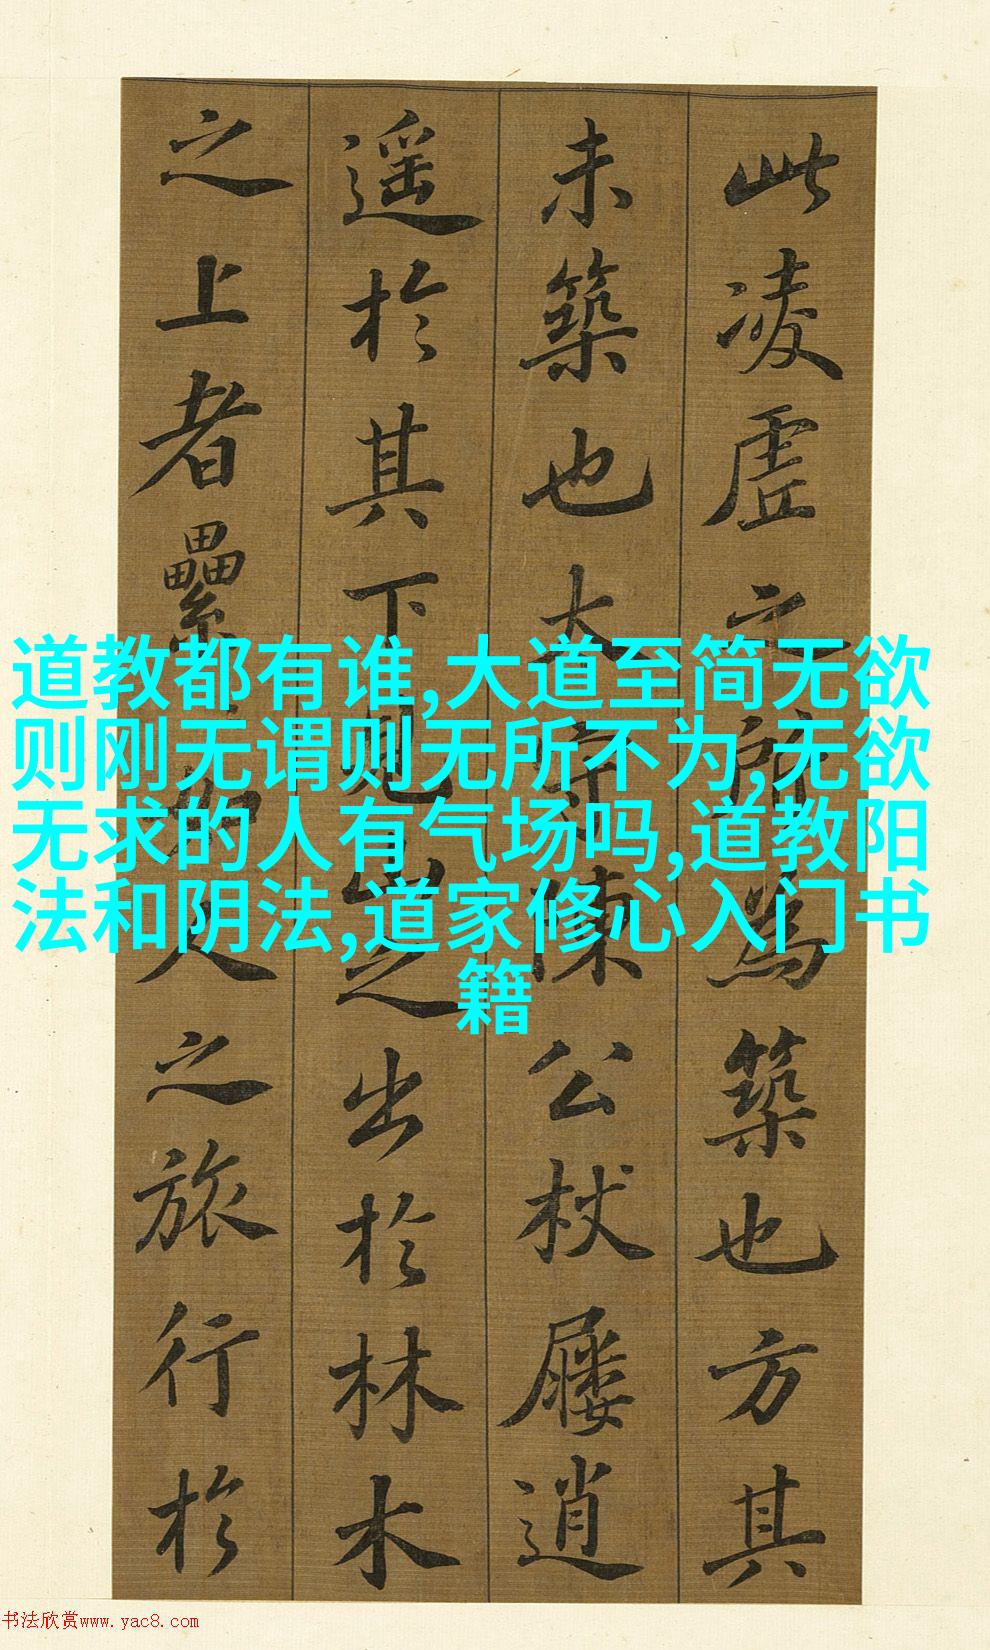 道教都有谁,大道至简无欲
则刚无谓则无所不为,无欲
无求的人有气场吗,道教阳
法和阴法,道家修心入门书
籍
此凌虚之所為築也方其
未築也大守陳公杖屨逍
遥於其下見山之出於林木
之上者纍如人之旅行於
书法欣赏www.yac8.com